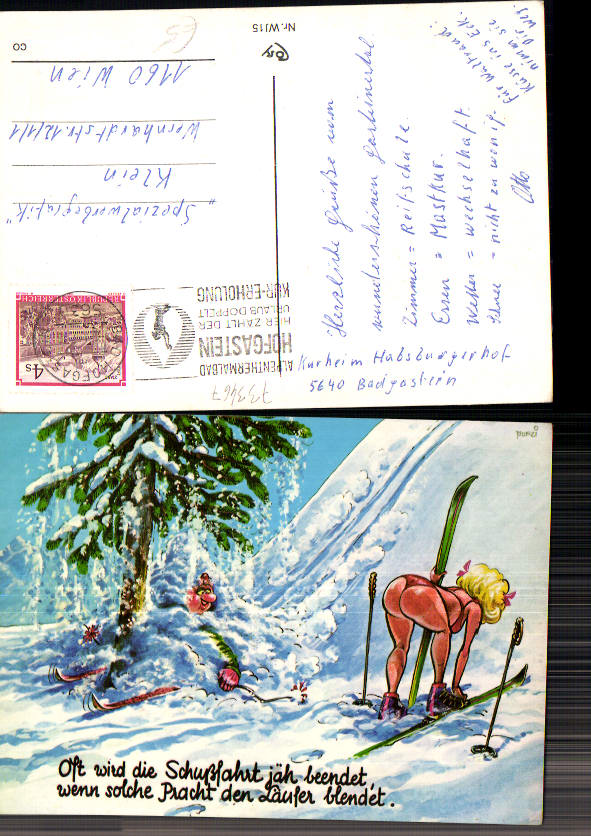 CO
Nr. WJ15
"Spezialwerbegrafik"
Klein
Wernhardtstr. 12/1/1
1160 Wien
REPUBLIK ÖSTERREICH
4 S
ALPENTHERMALBAD
HOFGASTEIN
HIER ZÄHLT DER
URLAUB DOPPELT
KUR-ERHOLUNG
733467
Herzliche Grüße vom
wunderschönen Gasteinertal.
Zimmer = Reitschule.
Essen = Mastkur.
Wetter = wechselhaft.
= nicht zu wenig.
Otto
Für Waltraud!
Küsse ins Eck.
nimm sie
Dir weg.
Kurheim Habsburgerhof
5640 Badgastein
Oft wird die Schußfahrt jäh beendet,
wenn solche Pracht den Läufer blendet.